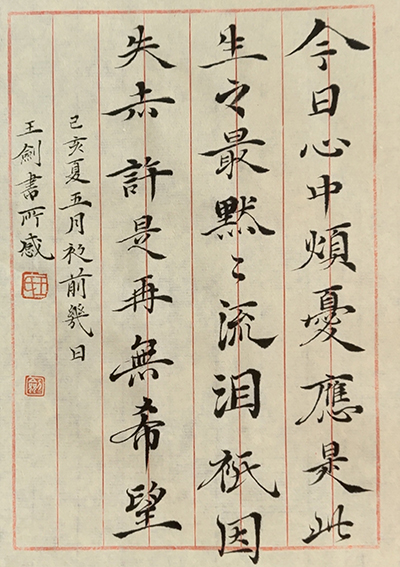 今日心中煩憂應是此
生之最默〻流泪祇因
失去許是再無希望
己亥夏五月初前幾日
王劍書所感